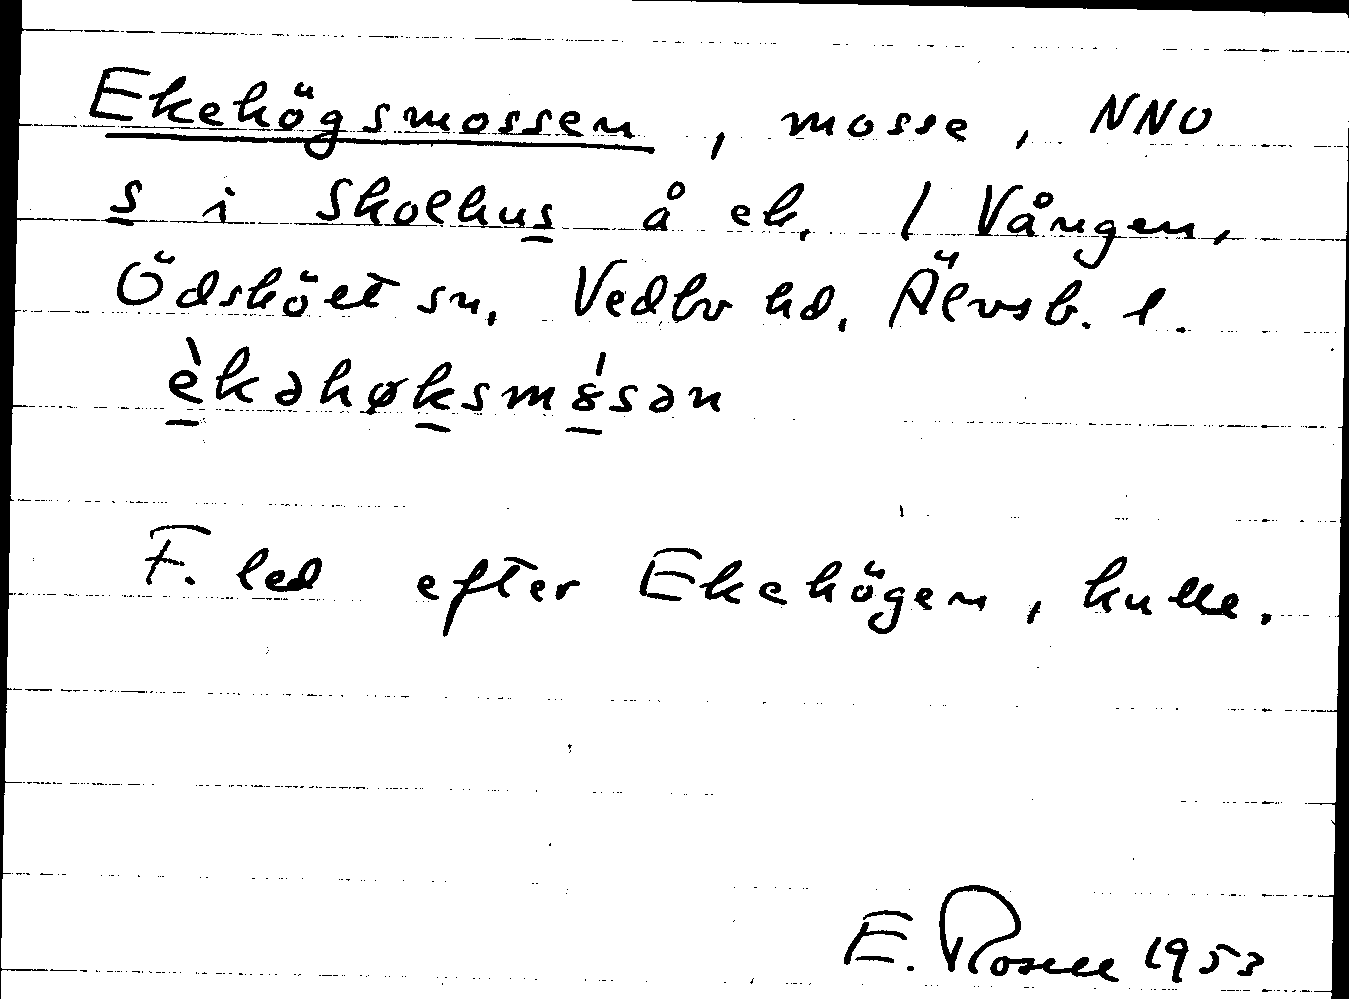 Ekehögsmossen, mosse, NNO
s i Skolhus å ek. 1 Vången,
Ödsköлt sn, Vedbo hd. Älvsb. l.
èkəhøksmɷ́sən
F. led efter Ekehögen, kulle.
E. Rosell 1953